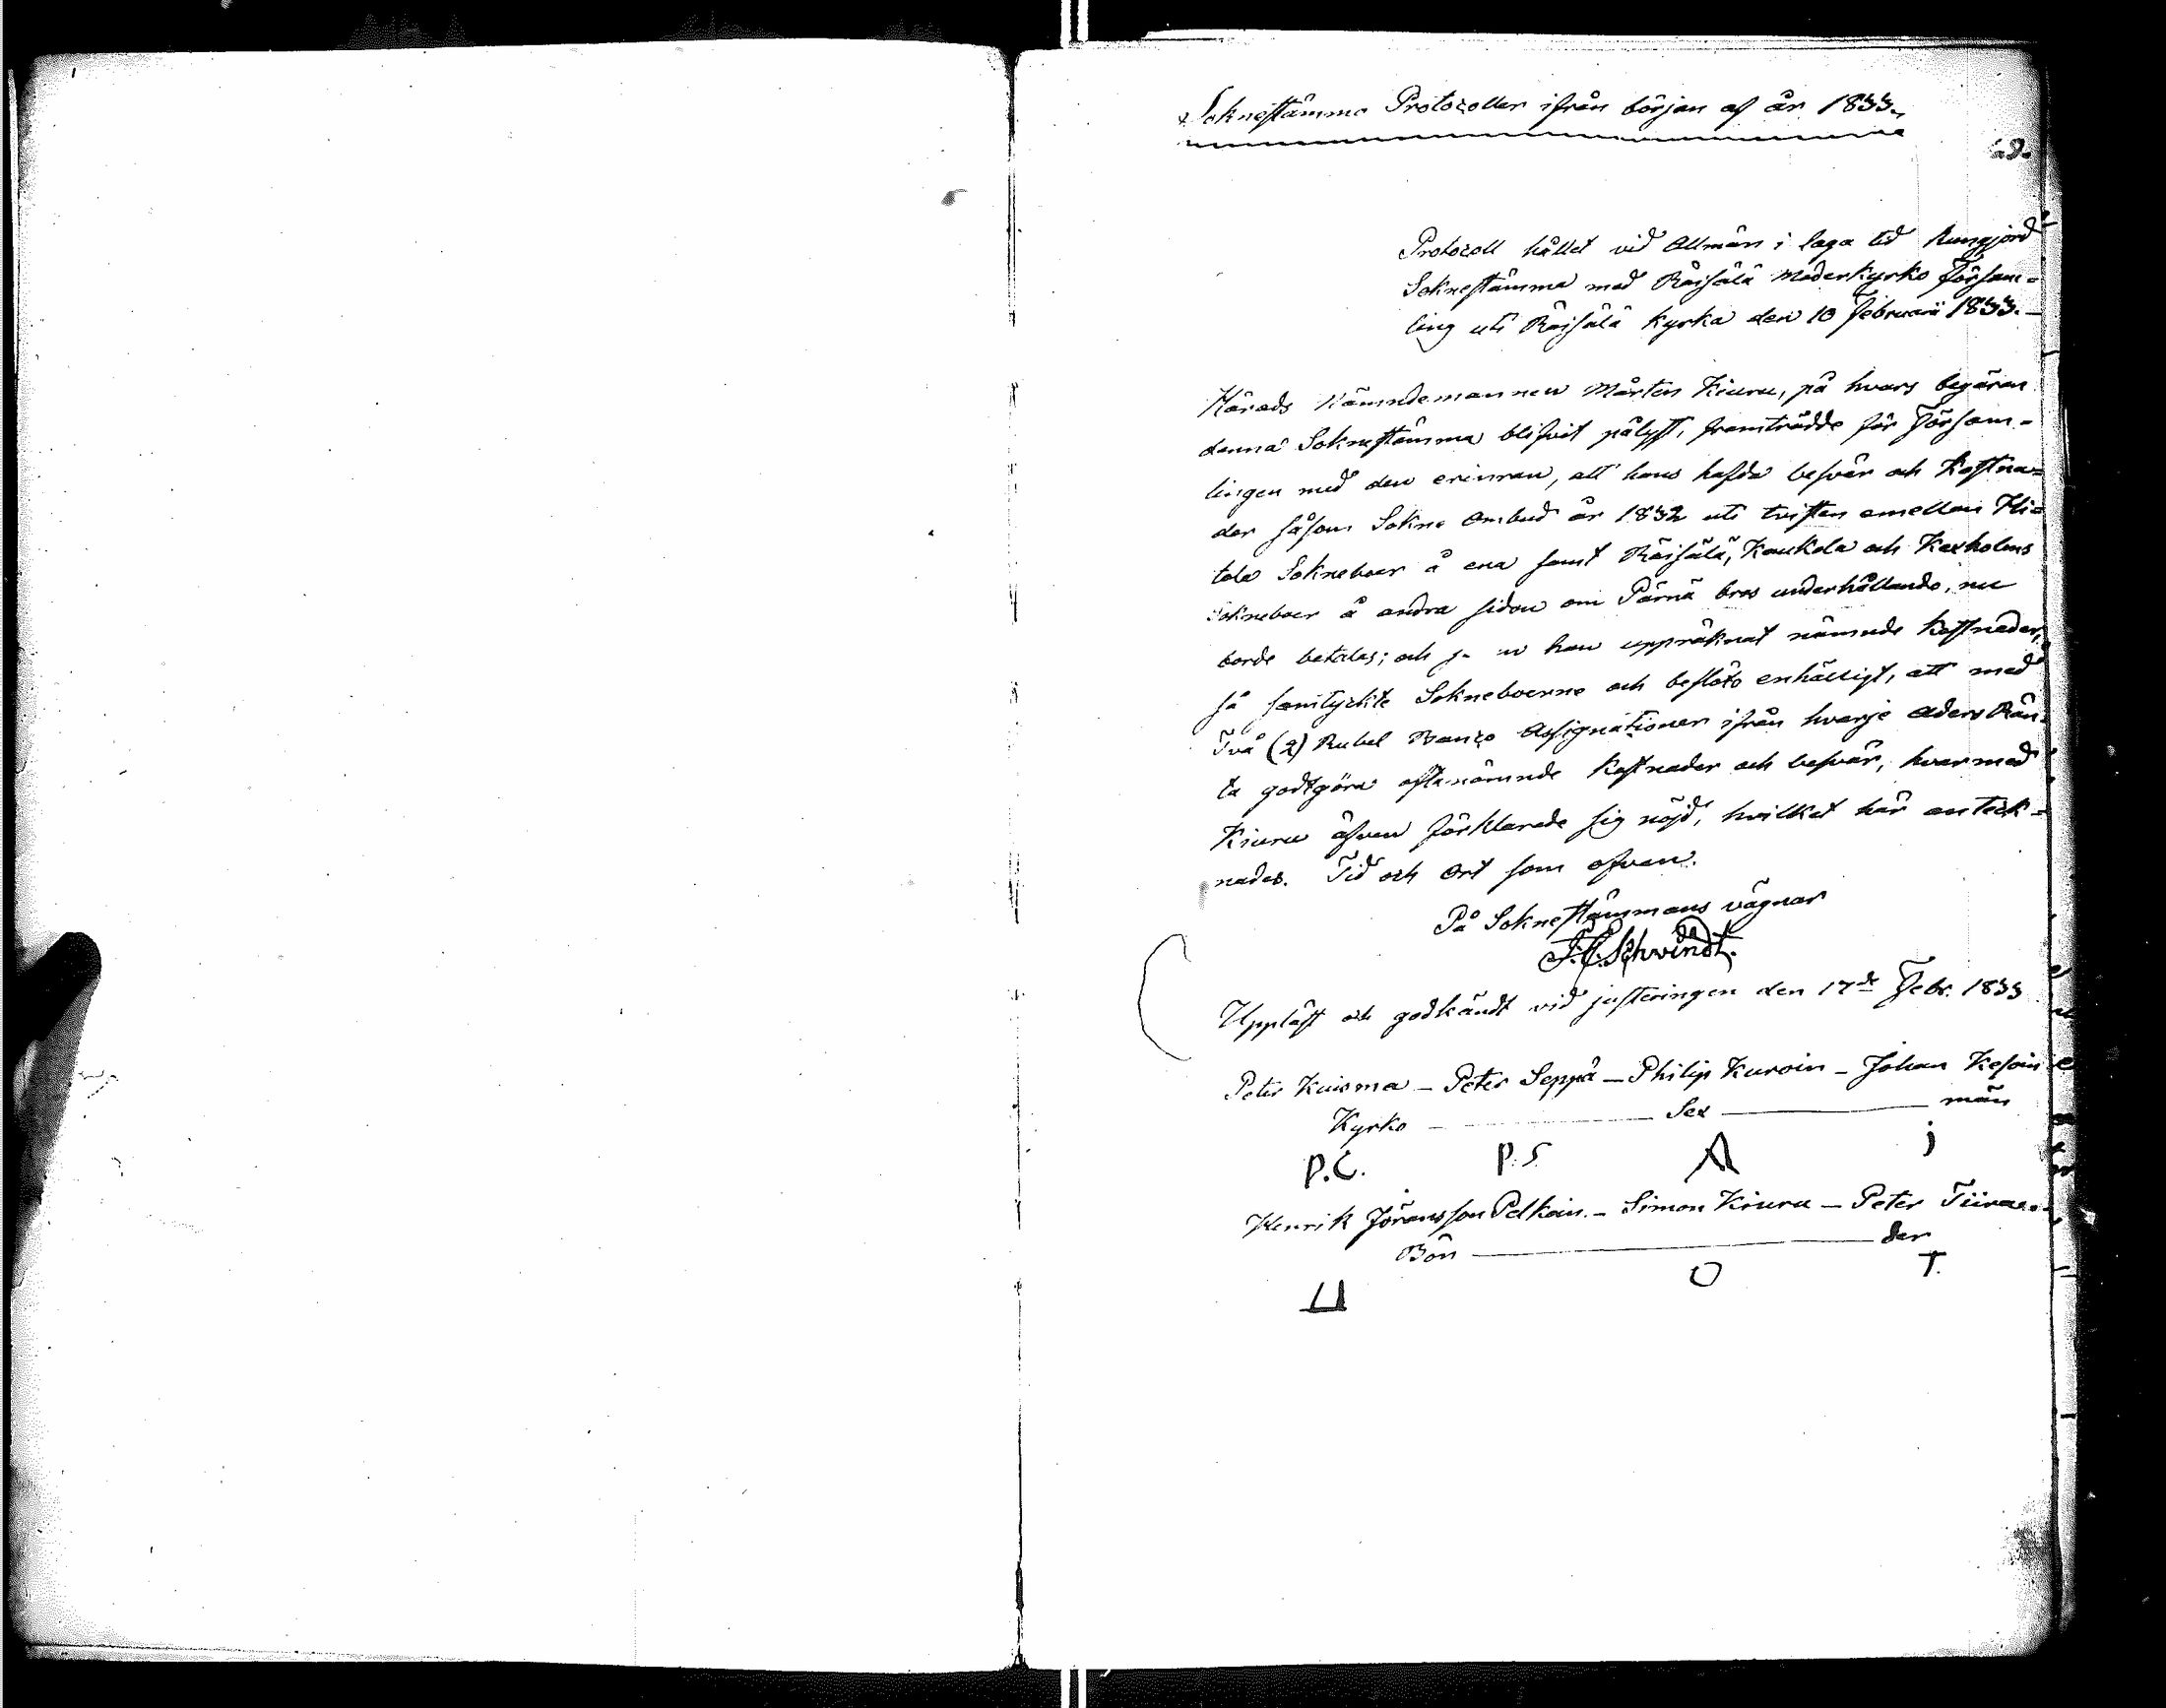 Soknestämmo Protocoller ifrån början af år 1833.
Protocoll hållet vid Allmän i laga tid kungjord
Soknestämma med Räisälä Moderkyrko Försam-
ling uti Räisälä Kyrka den 10 Februarii 1833.-
Härads Nämndemannen Mårten Kiuru, på hvars begäran
denna Soknestämma blifvit pålyst, framträdde för Försam-
lingen med den erinran, att hans hafda besvär och Kostna-
der såsom Sokne Ombud år 1832 uti tvisten emellan Hi-
tola Sokneboer å ena samt Räisälä, Kaukola och Kexholms
Sokneboer å andra sidan om Pärnä bros underhållande, nu
borde betalas; och han uppräknat nämnde Kostnader,
så samtyckte Sokneboerne och beslöto enhälligt, att med
Två (2) Rubel Banco Assignationer ifrån hvarje Aders Rän-
ta godtgöra oftanämnde Kostnader och besvär, hvarmed
Kiuru äfven förklarade sig nöjd, hvilket här anteck-
nades. Tid och Ort som ofvan.
På Soknestämmans vägnar
Schvindt.
Uppläst och godkändt vid justeringen den 17de Febr. 1833
Peter Kuisma - Peter Seppä - Philip Kuroin - Johan Kesoin
Kyrko - Sex - män
P.C. P.S. A j
Henrik Jöransson Pelkoin. - Simon Kiuru - Peter Tiira.
Bön - der
U O T.